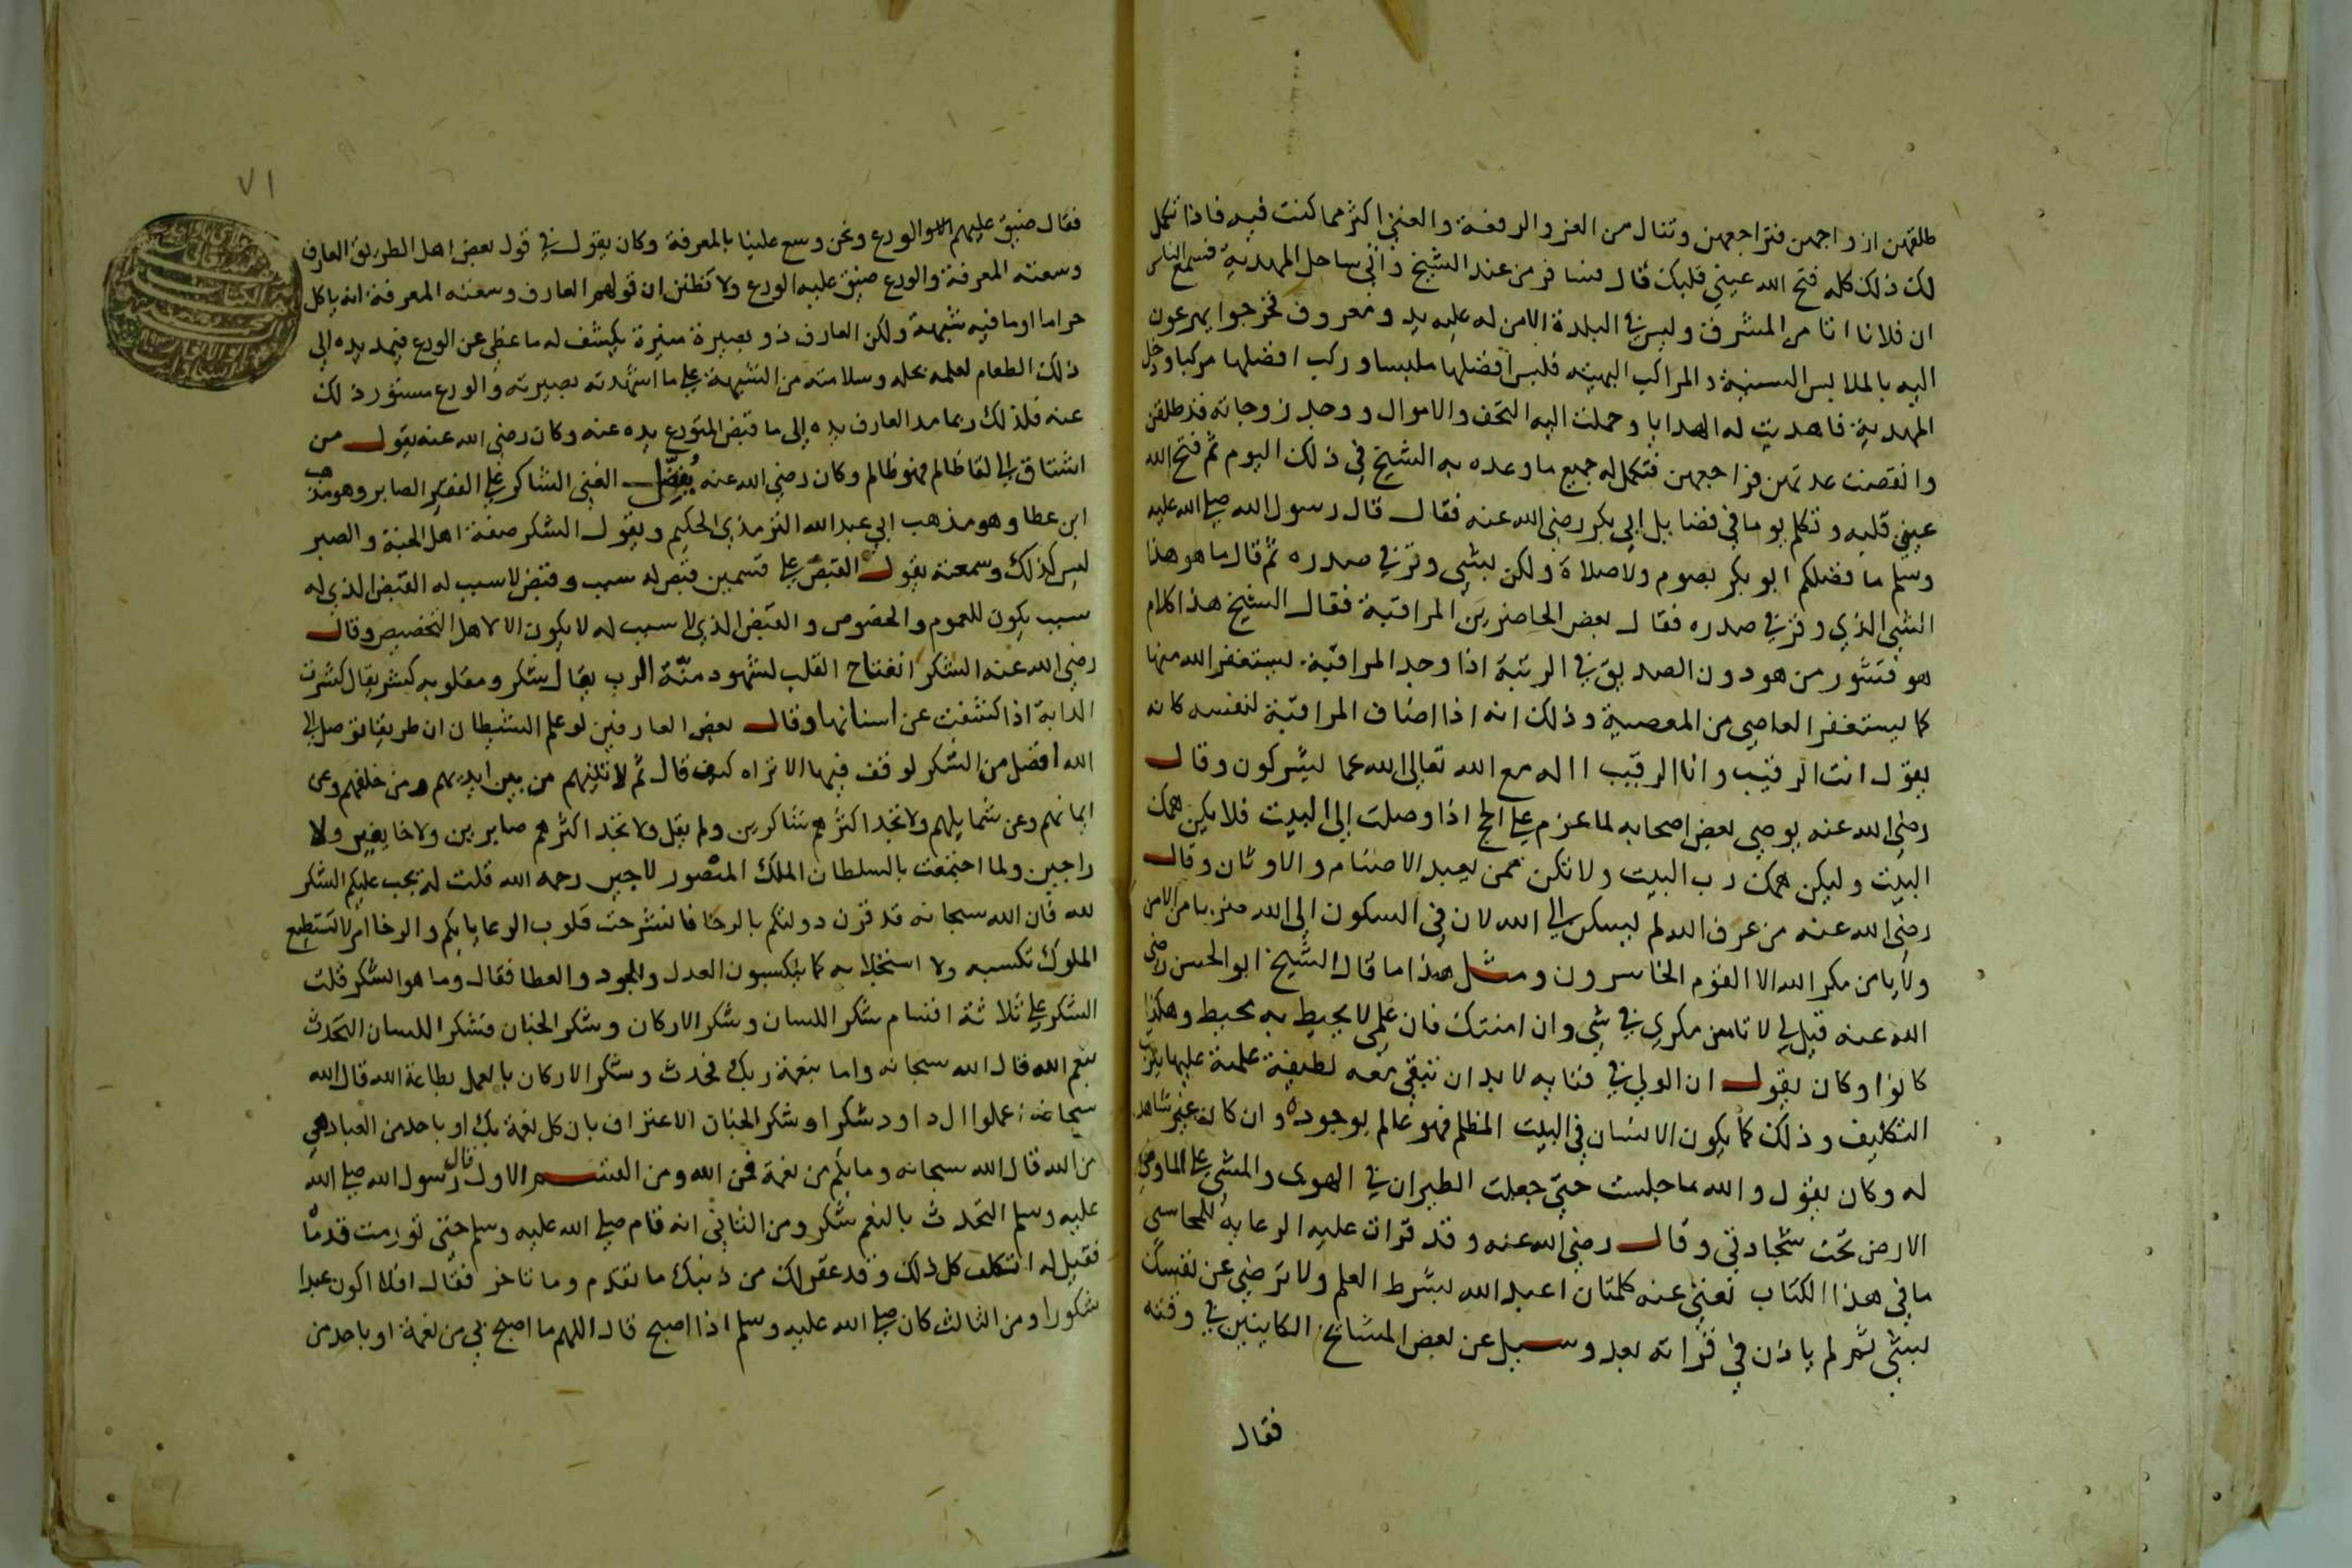 طلقهن ازواجهن فتراجعهن وتنال من العز والرفعة والغنى اكثر مما كنت فيه فاذا تكمل
لك ذلك كله فتح الله عيني قلبك قال فسافر من عند الشيخ واتى ساحل المهدية فسمع الناس
ان فلانا اتا من المشرق وليس في البلدة الا من له عليه يد ومعروف فخرجوا يهرعون
اليه بالملابس السنية والمراكب البهيته فلبس افضلها ملبسا وركب افضلها مركبا ودخل
المهدية فاهديت له الهدايا وحملت اليه التحف والاموال ووجد زوجاته قد طلقن
وانقضت عدتهن فراجعهن فتكمل له جميع ما وعده به الشيخ في ذلك اليوم ثم فتح الله
عيني قلبه وتكلم يوما في فضايل ابي بكر رضي الله عنه فقال قال رسول الله صلى الله عليه
وسلم ما فضلكم ابو بكر بصوم ولا صلاة ولكن بشي وقر في صدره ثم قال ما هو هذا
الشي الذي وقر في صدره فقال بعض الحاضرين المراقبة فقال الشيخ هذا كلام
هو قشور من هو دون الصديق في الرتبة اذا وجد المراقبة يستغفر الله منها
كما يستغفر العاصي من المعصية وذلك انه اذا اضاف المراقبة لنفسه كانه
يقول انت الرقيب وانا الرقيب االه مع الله تعالى الله عما يشركون وقال
رضي الله عنه يوصي بعض اصحابه لما عزم على الحج اذا وصلت الى البيت فلا يكن همك
البيت وليكن همك رب البيت ولا تكن ممن يعبد الاصنام والاوثان وقال
رضي الله عنه من عرف الله لم يسكن الى الله لان في السكون الى الله ضربا من الامن
ولا يامن مكر الله الا القوم الخاسرون ومثل هذا ما قال الشيخ ابو الحسن رضي
الله عنه قيل لي لا تامن مكري في شي وان امنتك فان علمي لا يحيط به محيط وهكذا
كانوا وكان يقول ان الولي في فنايه لا بد ان تبقى معه لطيفة علمية عليها يترتب
التكليف وذلك كما يكون الانسان في البيت المظلم فهو عالم بوجوده وان كان غير شاهد
له وكان يقول والله ما جلست حتى جعلت الطيران في الهوى والمشي على الماء
الارض تحت سجادتي وقال رضي الله عنه وقد قرات عليه الرعاية للمحاسبي
ما في هذا الكتاب تغني عنه كلمتان اعبد الله بشرط العلم ولا ترضى عن نفسك
بشي ثم لم ياذن في قراته بعد وسيل عن بعض المشايخ الكاينين في وقته
فقال
٧١
فقال ضيق عليهم الورع ونحن وسع علينا بالمعرفة وكان يقول في قول بعض اهل الطريق العارف
وسعته المعرفة والورع ضيق عليه الورع ولا تظنن ان قولهم العارف وسعته المعرفة انه ياكل
حراما او ما فيه شبهة ولكن العارف ذو بصيرة منيرة يكشف له ما غطي عن الورع فيمد يده الى
ذلك الطعام لعلمه بحله وسلامته من الشبهة على ما اشهدته بصيرته والورع مستور ذلك
عنه فلذلك ربما مد العارف يده الى ما قبض المتورع يده عنه وكان رضي الله عنه يقول من
اشتاق الى لقا ظالم فهو ظالم وكان رضي الله عنه يفضل الغني الشاكر على الفقير الصابر وهو مذهب
ابن عطا وهو مذهب ابي عبد الله الترمذي الحكيم ويقول الشكر صفة اهل الجنة والصبر
ليس كذلك وسمعته يقول القبض على قسمين قبض له سبب وقبض لا سبب له القبض الذي له
سبب يكون للعموم والخصوص والقبض الذي لا سبب له لا يكون الا لاهل التخصيص وقال
رضي الله عنه الشكر انفتاح القلب لشهود منة الرب يقال شكر ومقلوبه كشر يقال كشرت
الدابة اذا كشفت عن اسنانها وقال بعض العارفين لو علم الشيطان ان طريقا توصل الى
الله افضل من الشكر لوقف فيها الا تراه كيف قال ثم لاتينهم من بين ايديهم ومن خلفهم وعن
ايمانهم وعن شمايلهم ولا تجد اكثرهم شاكرين ولم يقل ولا تجد اكثرهم صابرين ولا خايفين ولا
راجين ولما اجتمعت بالسلطان الملك المنصور لاجين رحمه الله قلت له يجب عليكم الشكر
لله فان الله سبحانه قد قرن دولتكم بالرخا فانشرحت قلوب الرعايا بكم والرخا امر لا تستطيع
الملوك تكسبه ولا استجلابه كما يتكسبون العدل والجود والعطا فقال وما هو الشكر قلت
الشكر على ثلاثة اقسام شكر اللسان وشكر الاركان وشكر الجنان فشكر اللسان التحدث
بنعم الله قال الله سبحانه واما بنعمة ربك فحدث وشكر الاركان بالعمل بطاعة الله قال الله
سبحانه اعملوا ال داود شكرا وشكر الجنان الاعتراف بان كل نعمة بك او باحد من العباد هي
من الله قال الله سبحانه وما بكم من نعمة فمن الله ومن القسم الاول قال رسول الله صلى الله
عليه وسلم التحدث بالنعم شكر ومن الثاني انه قام صلى الله عليه وسلم حتى تورمت قدماه
فقيل له اتتكلف كل ذلك وقد غفر لك من ذنبك ما تقدم وما تاخر فقال افلا اكون عبدا
شكورا ومن الثالث كان صلى الله عليه وسلم اذا اصبح قال اللهم ما اصبح بي من نعمة او باحد من